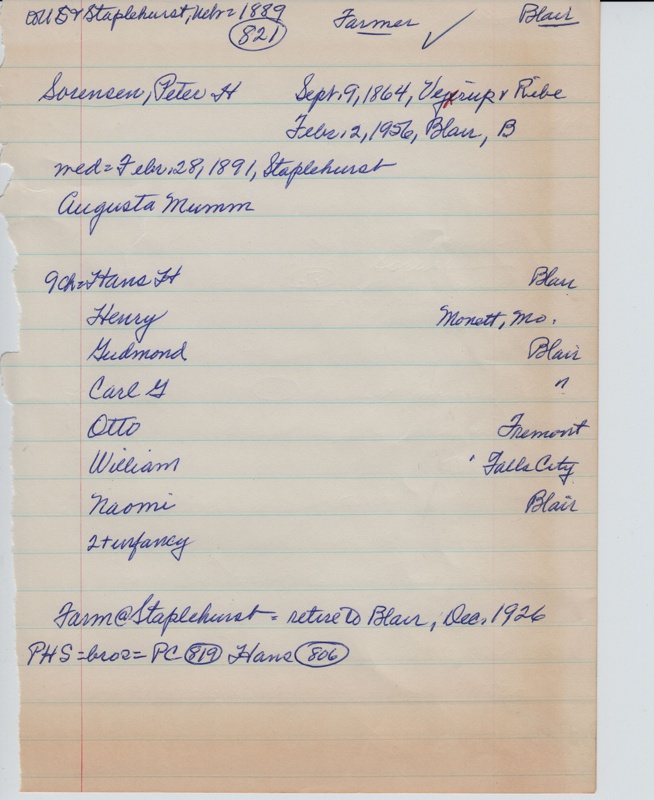 Staplehurst, Nebr = 1889 Farmer ✓ Blair
821
Sorensen, Peter H Sept. 9, 1864, Vejrup + Ribe
Febr. 2, 1956, Blair, B
med = Febr. 28, 1891, Staplehurst
Augusta Mumm
9 ch = Hans H Blair
Henry Monett, Mo.
Gudmond Blair
Carl G "
Otto Fremont
William Falls City
Naomi Blair
2 + infancy
Farm @ Staplehurst = retire to Blair, Dec. 1926
PHS = bros = PC 819 Hans 806